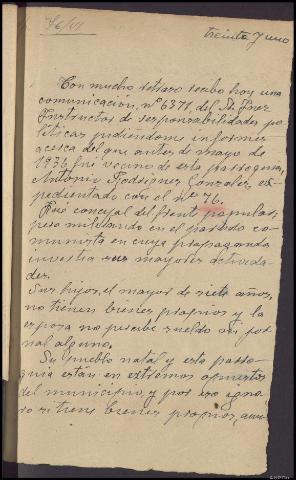 treinta y uno
Con mucho retraso recibo hoy una
comunicación, nº 6371, del Sr. Juez
Instructor de responsabilidades po-
líticas pidiéndome informes
acerca del que antes de mayo de
1936 fué vecino de esta parroquia,
Antonio Rodríguez González, ex-
pedientado con el nº 76.
Fué concejal del frente popular,
pero militando en el partido co-
munista en cuya propaganda
invertía sus mayores activida-
des.
Sus hijos, el mayor de siete años,
no tienen bienes propios y la
esposa no percibe sueldo ni jor-
nal alguno.
Su pueblo natal y esta parro-
quia están en extremos opuestos
del municipio, y por eso igno-
ro si tiene bienes propios, aun-